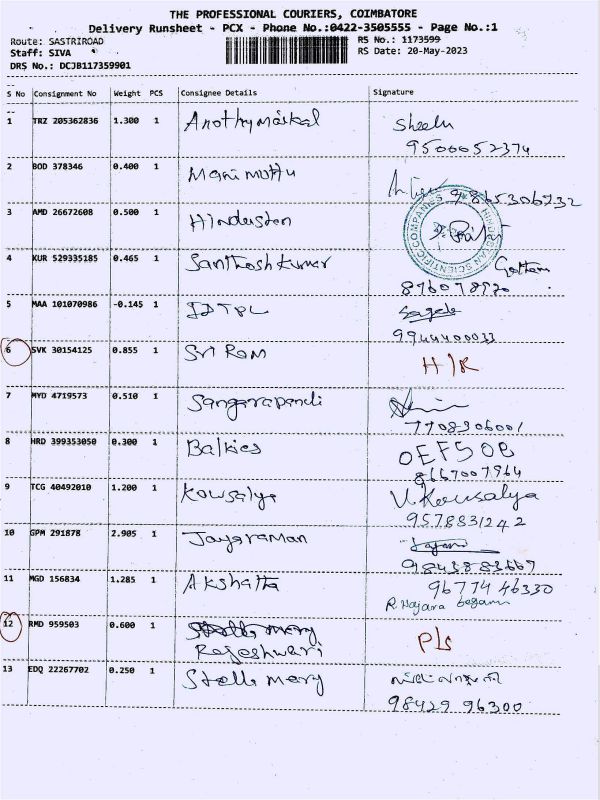 THE PROFESSIONAL COURIERS, COIMBATORE
Delivery Runsheet - PCX - Phone No.:0422-3505555 - Page No.:1
Route: SASTRIROAD RS No.: 1173599
Staff: SIVA RS Date: 20-May-2023
DRS No.: DCJB117359901
S No Consignment No Weight PCS Consignee Details Signature
1 TRZ 205362836 1.300 1 Sheela
9500052374
2 BOD 378346 0.400 1 Mani muthu
9865306932
3 AMD 26672608 0.500 1 Hindustan
HINDUSTAN SCIENTIFIC COMPANIES
4 KUR 529335185 0.465 1 Santhosh kumar Gottam
5 MAA 101070986 -0.145 1 IDTPL
9944400033
6 SVK 30154125 0.855 1 Sri Ram H/R
7 MYD 4719573 0.510 1 Sangarapandi
7708906001
8 HRD 399353050 0.300 1 Balkies OEFSOB
8667007964
9 TCG 40492010 1.200 1 Kowsalya V. Kowsalya
9578831242
10 GPM 291878 2.905 1 Jayaraman
9843883667
11 MGD 156834 1.285 1 Akshatta 96774 46330
R. Hajara begam
12 RMD 959503 0.600 1 Stella mary P/s
Rajeshwari
13 EDQ 22267702 0.250 1 Stella mary
98429 96300